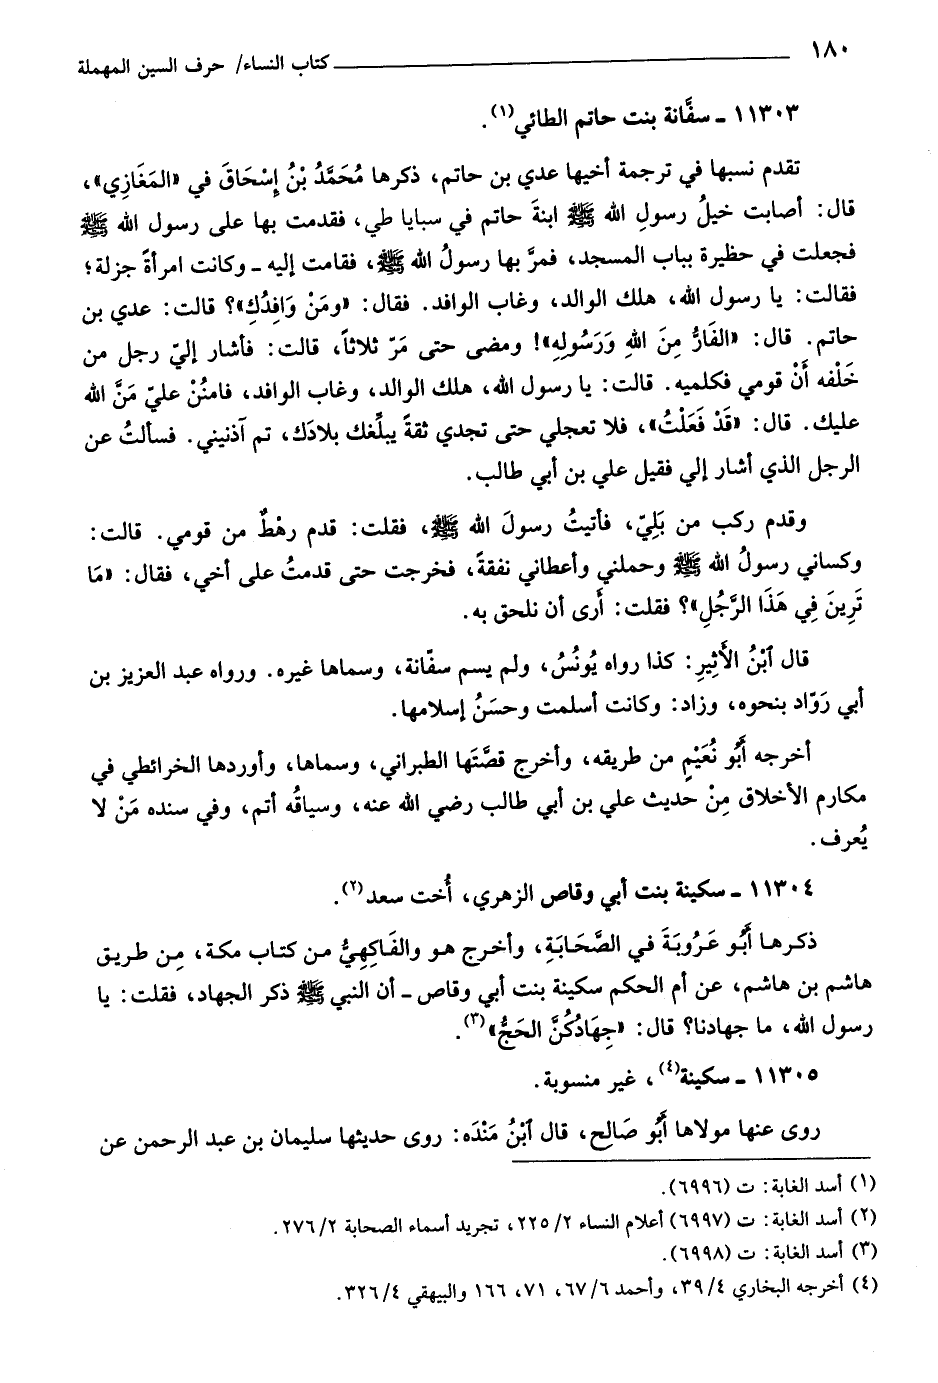 ١٨٠ ــــــ كتاب النساء/ حرف السين المهملة
١١٣٠٣ ـ سفَّانة بنت حاتم الطائي(١).
تقدم نسبها في ترجمة أخيها عدي بن حاتم، ذكرها مُحَمَّدُ بْنُ إِسْحَاقَ في «المَغَازِي»،
قال: أصابت خيلُ رسولِ الله ﷺ ابنةَ حاتم في سبايا طي، فقدمت بها على رسول الله ﷺ
فجعلت في حظيرة بباب المسجد، فمرَّ بها رسولُ الله ﷺ، فقامت إليه ـ وكانت امرأةً جزلة؛
فقالت: يا رسول الله، هلك الوالد، وغاب الوافد. فقال: «ومَنْ وَافِدُكِ»؟ قالت: عدي بن
حاتم. قال: «الفَارُّ مِنَ اللهِ وَرَسُولِهِ»! ومضى حتى مَرّ ثلاثاً، قالت: فأشار إليّ رجل من
خَلْفه أَنْ قومي فكلميه. قالت: يا رسول الله، هلك الوالد، وغاب الوافد، فامنُنْ عليّ مَنَّ الله
عليك. قال: «قَدْ فَعَلْتُ»، فلا تعجلي حتى تجدي ثقةً يبلِّغك بلادَك، تم آذنيني. فسألتُ عن
الرجل الذي أشار إلي فقيل علي بن أبي طالب.
وقدم ركب من بَلِيّ، فأتيتُ رسولَ الله ﷺ، فقلت: قدم رهْطٌ من قومي. قالت:
وكساني رسولُ الله ﷺ وحملني وأعطاني نفقةً، فخرجت حتى قدمتُ على أخي، فقال: «مَا
تَرِينَ فِي هَذَا الرَّجُلِ»؟ فقلت: أَرى أن نلحق به.
قال ٱبْنُ الأَثِيرِ: كذا رواه يُونُسُ، ولم يسم سفّانة، وسماها غيره. ورواه عبد العزيز بن
أبي رَوّاد بنحوه، وزاد: وكانت أسلمت وحسَنُ إسلامها.
أخرجه أَبُو نُعَيْمٍ من طريقه، وأخرج قصَّتَها الطبراني، وسماها، وأوردها الخرائطي في
مكارم الأخلاق مِنْ حديث علي بن أبي طالب رضي الله عنه، وسياقُه أتم، وفي سنده مَنْ لا
يُعرف.
١١٣٠٤ ـ سكينة بنت أبي وقاص الزهري، أُخت سعد(٢).
ذكرها أَبُو عَرُوبَةَ في الصَّحَابَةِ، وأخرج هو والفَاكِهِيُّ من كتاب مكة، مِن طريق
هاشم بن هاشم، عن أم الحكم سكينة بنت أبي وقاص ـ أن النبي ﷺ ذكر الجهاد، فقلت: يا
رسول الله، ما جهادنا؟ قال: «جِهَادُكُنَّ الحَجُّ»(٣).
١١٣٠٥ ـ سكينة(٤)، غير منسوبة.
روى عنها مولاها أَبُو صَالِحٍ، قال ٱبْنُ مَنْدَه: روى حديثها سليمان بن عبد الرحمن عن
(١) أسد الغابة: ت (٦٩٩٦).
(٢) أسد الغابة: ت (٦٩٩٧) أعلام النساء ٢/ ٢٢٥، تجريد أسماء الصحابة ٢/ ٢٧٦.
(٣) أسد الغابة: ت (٦٩٩٨).
(٤) أخرجه البخاري ٤/ ٣٩، وأحمد ٦/ ٦٧، ٧١، ١٦٦ والبيهقي ٤/ ٣٢٦.